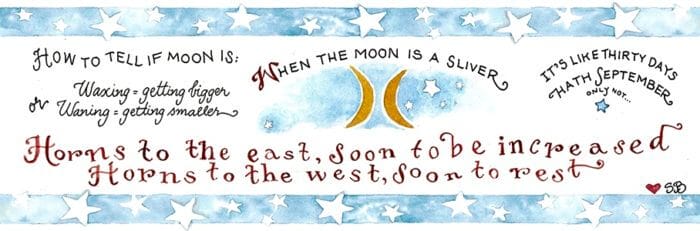 HOW TO TELL IF MOON IS:
Waxing = getting bigger
or Waning = getting smaller
WHEN THE MOON IS A SLIVER
IT'S LIKE THIRTY DAYS
HATH SEPTEMBER
ONLY NOT...
Horns to the east, Soon to be increased
Horns to the west, Soon to rest
SB